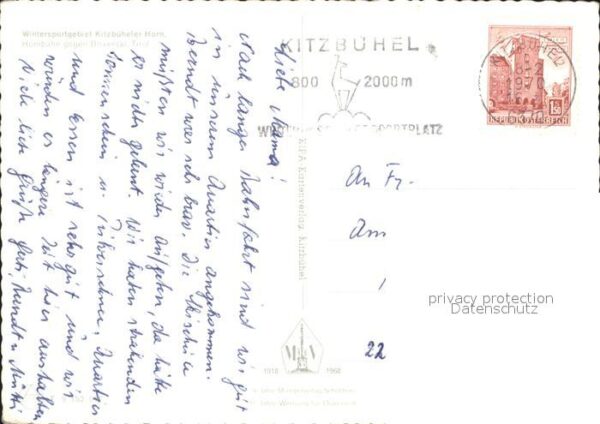 Wintersportgebiet Kitzbüheler Horn,
Hornbahn gegen Tirol
Liebe Mama!
Nach langer Bahnfahrt sind wir gut
in unserem Quartier angekommen.
Berndt war sehr brav. Die Skischule
müßten wir wieder aufgeben, da hätte
er nichts gelernt. Wir haben strahlenden
Sonnenschein u. Pulverschnee, Quartier
und Essen ist sehr gut und wir
würden es längere Zeit hier aushalten
Viele liebe Grüße
KITZBÜHEL
800 2000m
WINTER SPORTPLATZ
KITZBÜHEL
REPUBLIK ÖSTERREICH
1.50
KIFA Kartenverlag, Kitzbühel
An Fr.
Am
1
22
privacy protection
Datenschutz
1918 1968